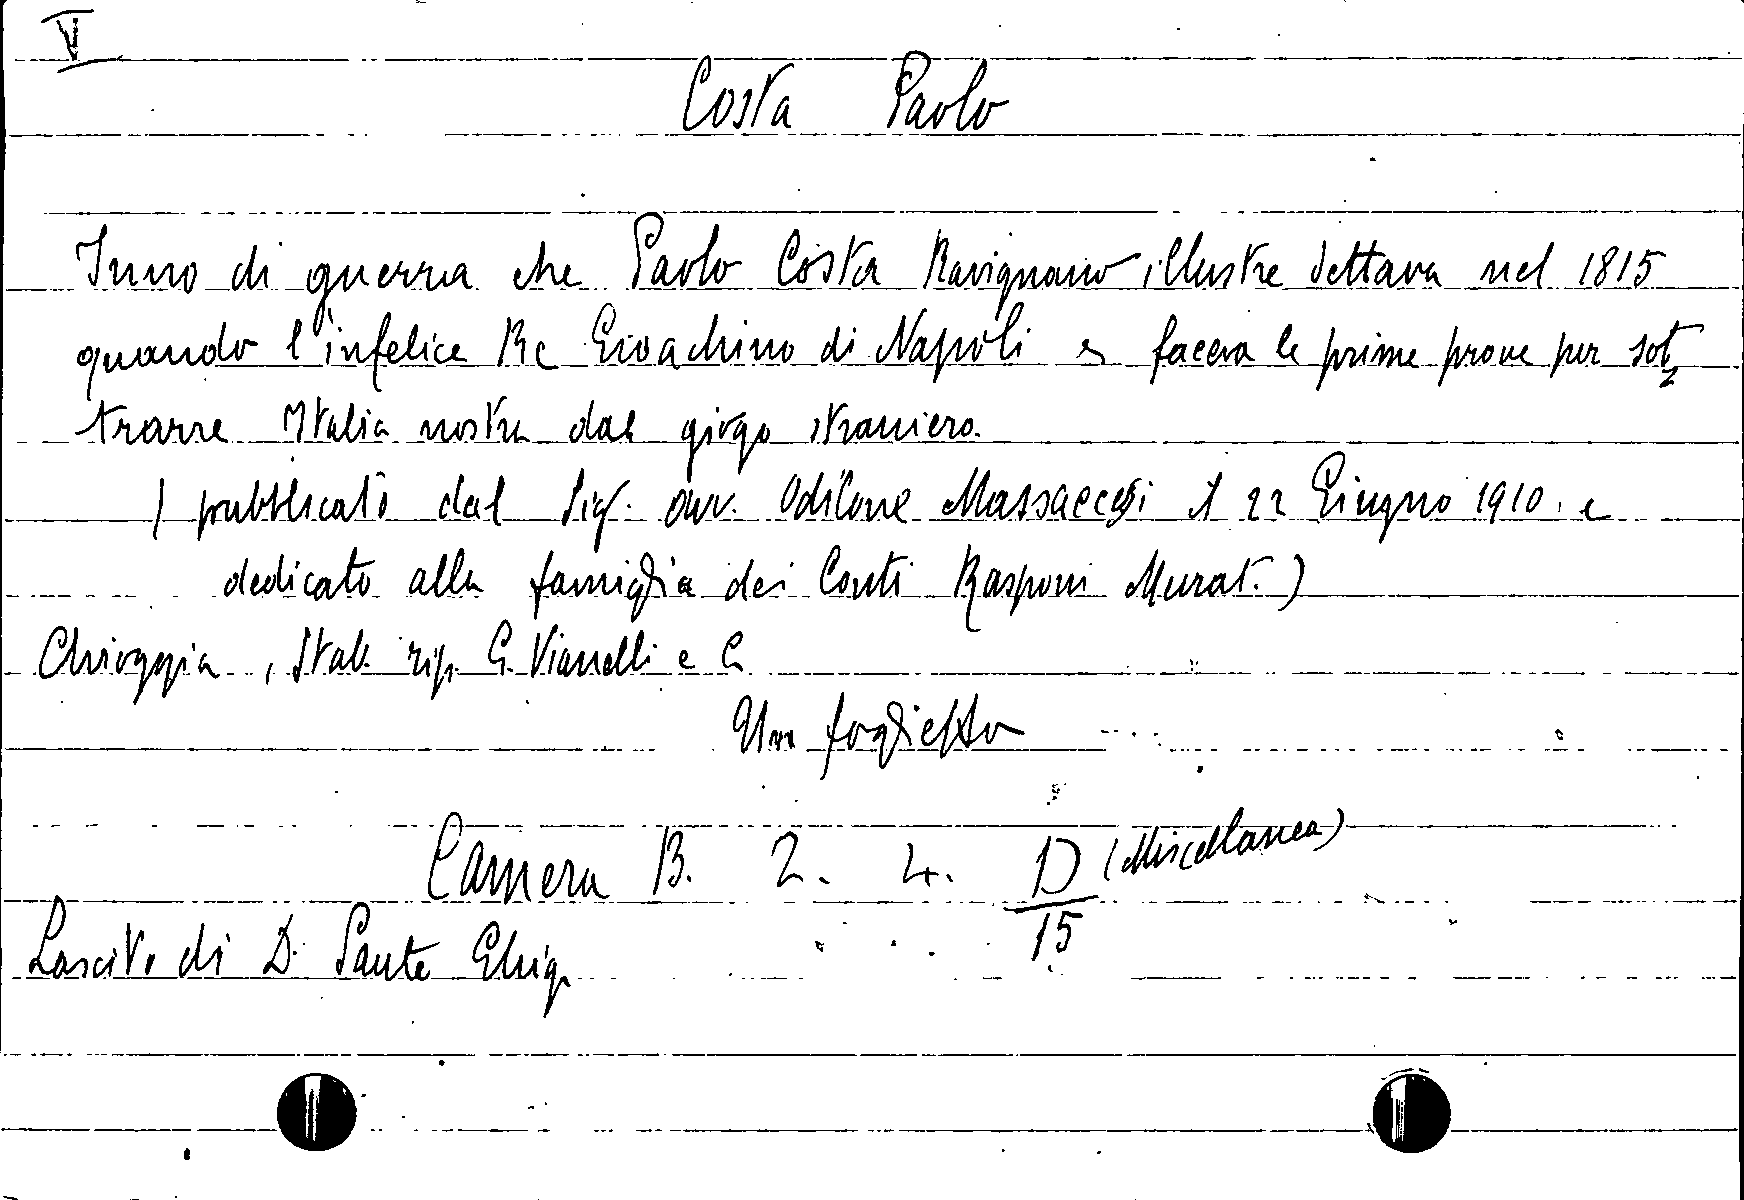 V
Costa Paolo
Inno di guerra che Paolo Costa Ravignano illustre dettava nel 1815
quando l'infelice Re Gioachino di Napoli faceva le prime prove per sot-
trarre Italia nostra dal giogo straniero.
( pubblicato dal Sig. avv. Odilone Massacesi il 22 Giugno 1910. e
dedicato alla famiglia dei Conti Rasponi Murat. )
Chioggia, Stab. tip. G. Vianelli e C.
Un foglietto
Camera B. 2. 4. D (Miscellanea)
15
Lascito di D. Sante Ghig.